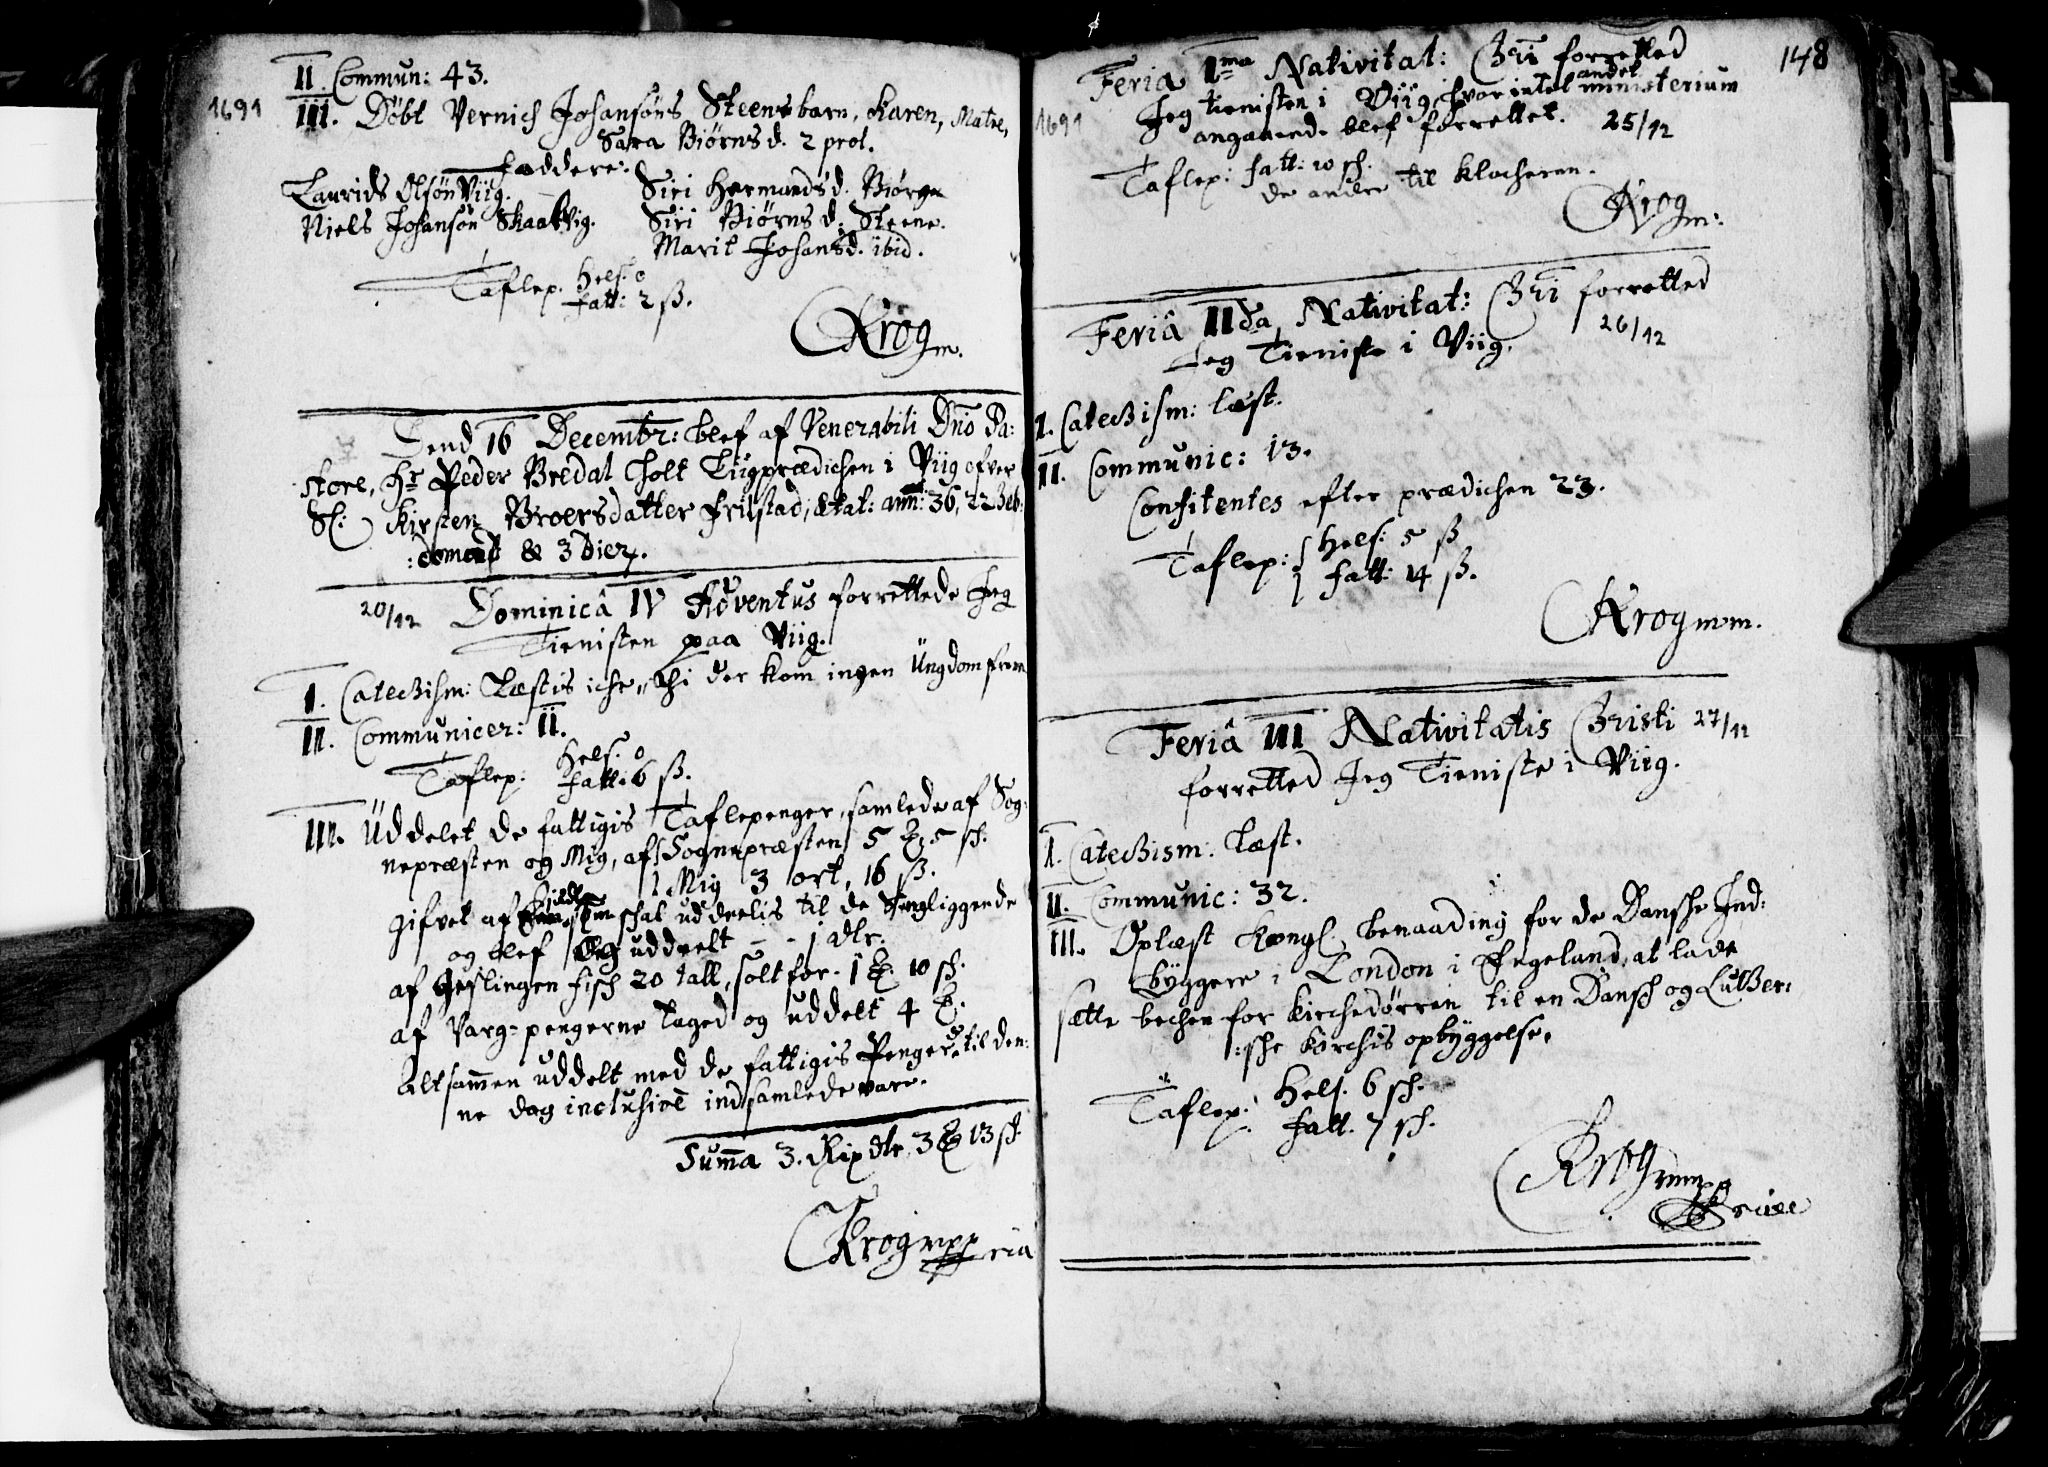 II Commun: 43.
1691
III. Döbt Vernich Johansöns Steens barn, Karen, Matre,
Sara Biörns d. 2 prol.
Faddere:
Laurids Olsön Viig. Siri Hermands d. Biörge
Niels Johansön Skaalvig. Siri Biörns d: Steene.
Marit Johansd. ibid.
Taflep. Hels. 0
fatt: 2 ß.
Krog m.
Dend 16 Decembr: blef af Venerabili Dno Pa:
store, Hr Peder Bredal holt Liigprædichen i Viig ofver
Sl: Kirsten Broersdatter Friistad, ætat: ann: 36, 22 Heb:
:domad & 3 Dier.
20/12 Dominicâ IV Adventus forrettede Jeg
Tienisten paa Viig.
I. Catechism: Læstis iche, thi der kom ingen Ungdom frem
II. Communicer: II.
Taflep: Hels. 0
fatt: 6 ß.
III. Uddelet de fattigis Taflepenger, samlede af Sog:
nepræsten og Mig, af Sognepræsten 5 ℔ 5 sch.
Mig 3 ort, 16 ß.
gifvet af som schal uddeelis til de Sengliggende
og blef Og uddeelt - - 1 dlr.
af Geslingen fisch 20 tall, solt for - 1 ℔. 10 sch.
af Varg-pengerne taged og uddelt 4 ℔.
Altsammen uddelt med de fattigis Penger til den:
ne dag inclusivè indsamlede vare.
Summa 3. Rixdlr 3 ℔ 13 sch.
Krog mpp ria
148
Feria Ima Nativitat: Chri forretted
1691
Jeg tienisten i Viig, hvor intet andet ministerium
angaaend. blef forrettet. 25/12
Taflep: fatt: 10 sch.
de andre til Klocheren.
Krog m:
Feriâ IIda Nativitat: Chri forretted
Jeg Tieniste i Viig. 26/12
I. Catechism: læst.
II. Communic: 13.
Confitentes efter prædichen 23.
Taflep: Hels: 5 ß
fatt: 14 ß.
Krog mm.
Feriâ III Nativitatis Christi 27/12
forretted Jeg Tieniste i Viig.
I. Catechism. Læst.
II. Communic: 32.
III. Oplæst Kongl. benaading for de Dansche Ind:
byggere i London i Engeland, at lade
sætte becher for Kirchedörren til en Dansch og Luther:
:sche Kirchis opbyggelse.
Taflep: Hels. 6 sch.
fatt. 7 sch.
Krog mmpp